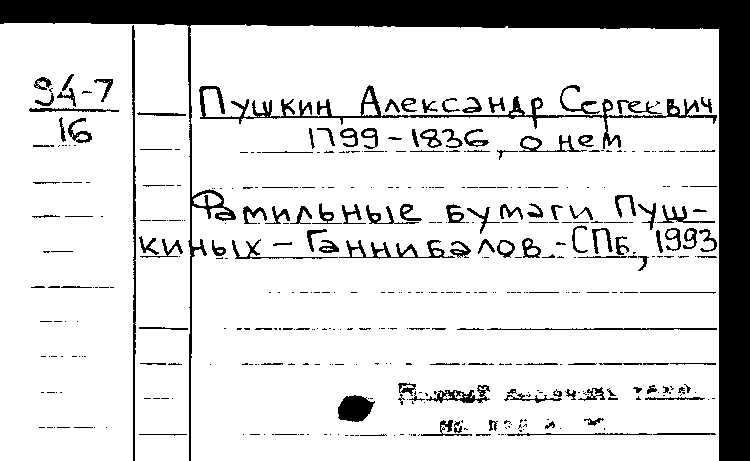 94-7
16
Пушкин, Александр Сергеевич,
1799-1836, о нем
Фамильные бумаги Пуш-
киных - Ганнибалов.- СПб., 1993